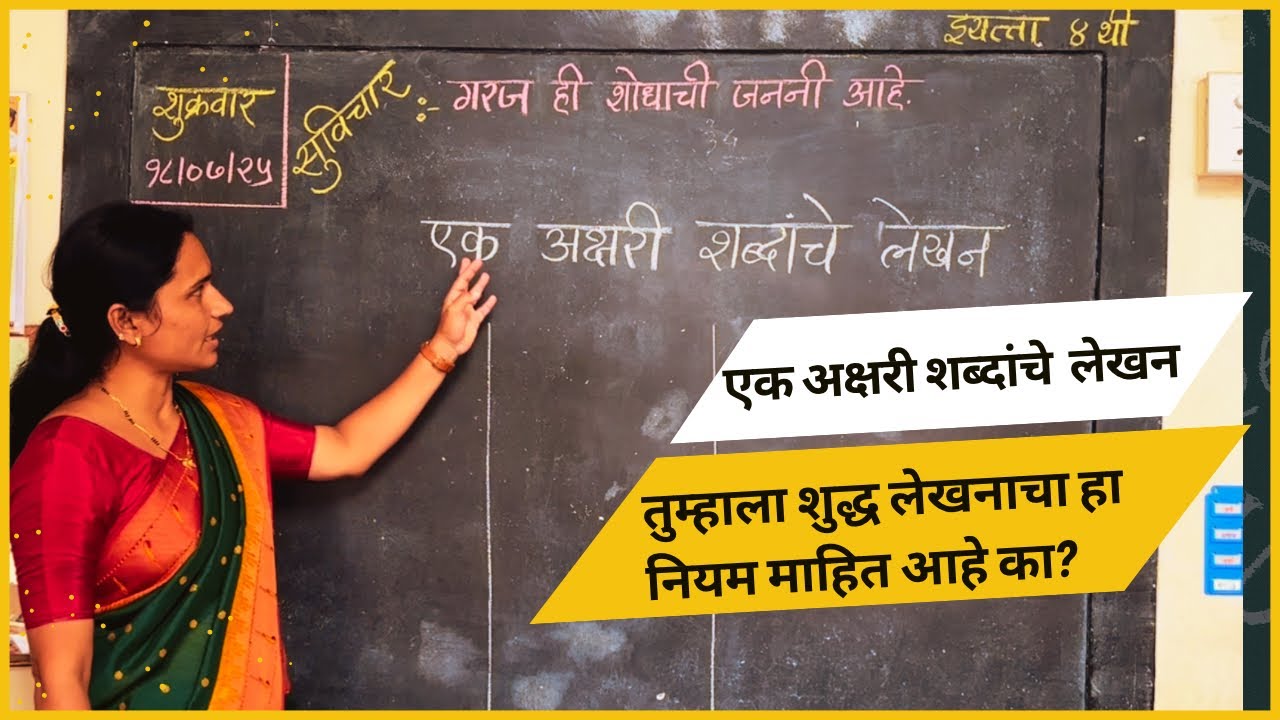 इयत्ता ४ थी
शुक्रवार
१८/०७/२५
सुविचार :- गरज ही शोधाची जननी आहे.
एक अक्षरी शब्दांचे लेखन
एक अक्षरी शब्दांचे लेखन
तुम्हाला शुद्ध लेखनाचा हा
नियम माहित आहे का?